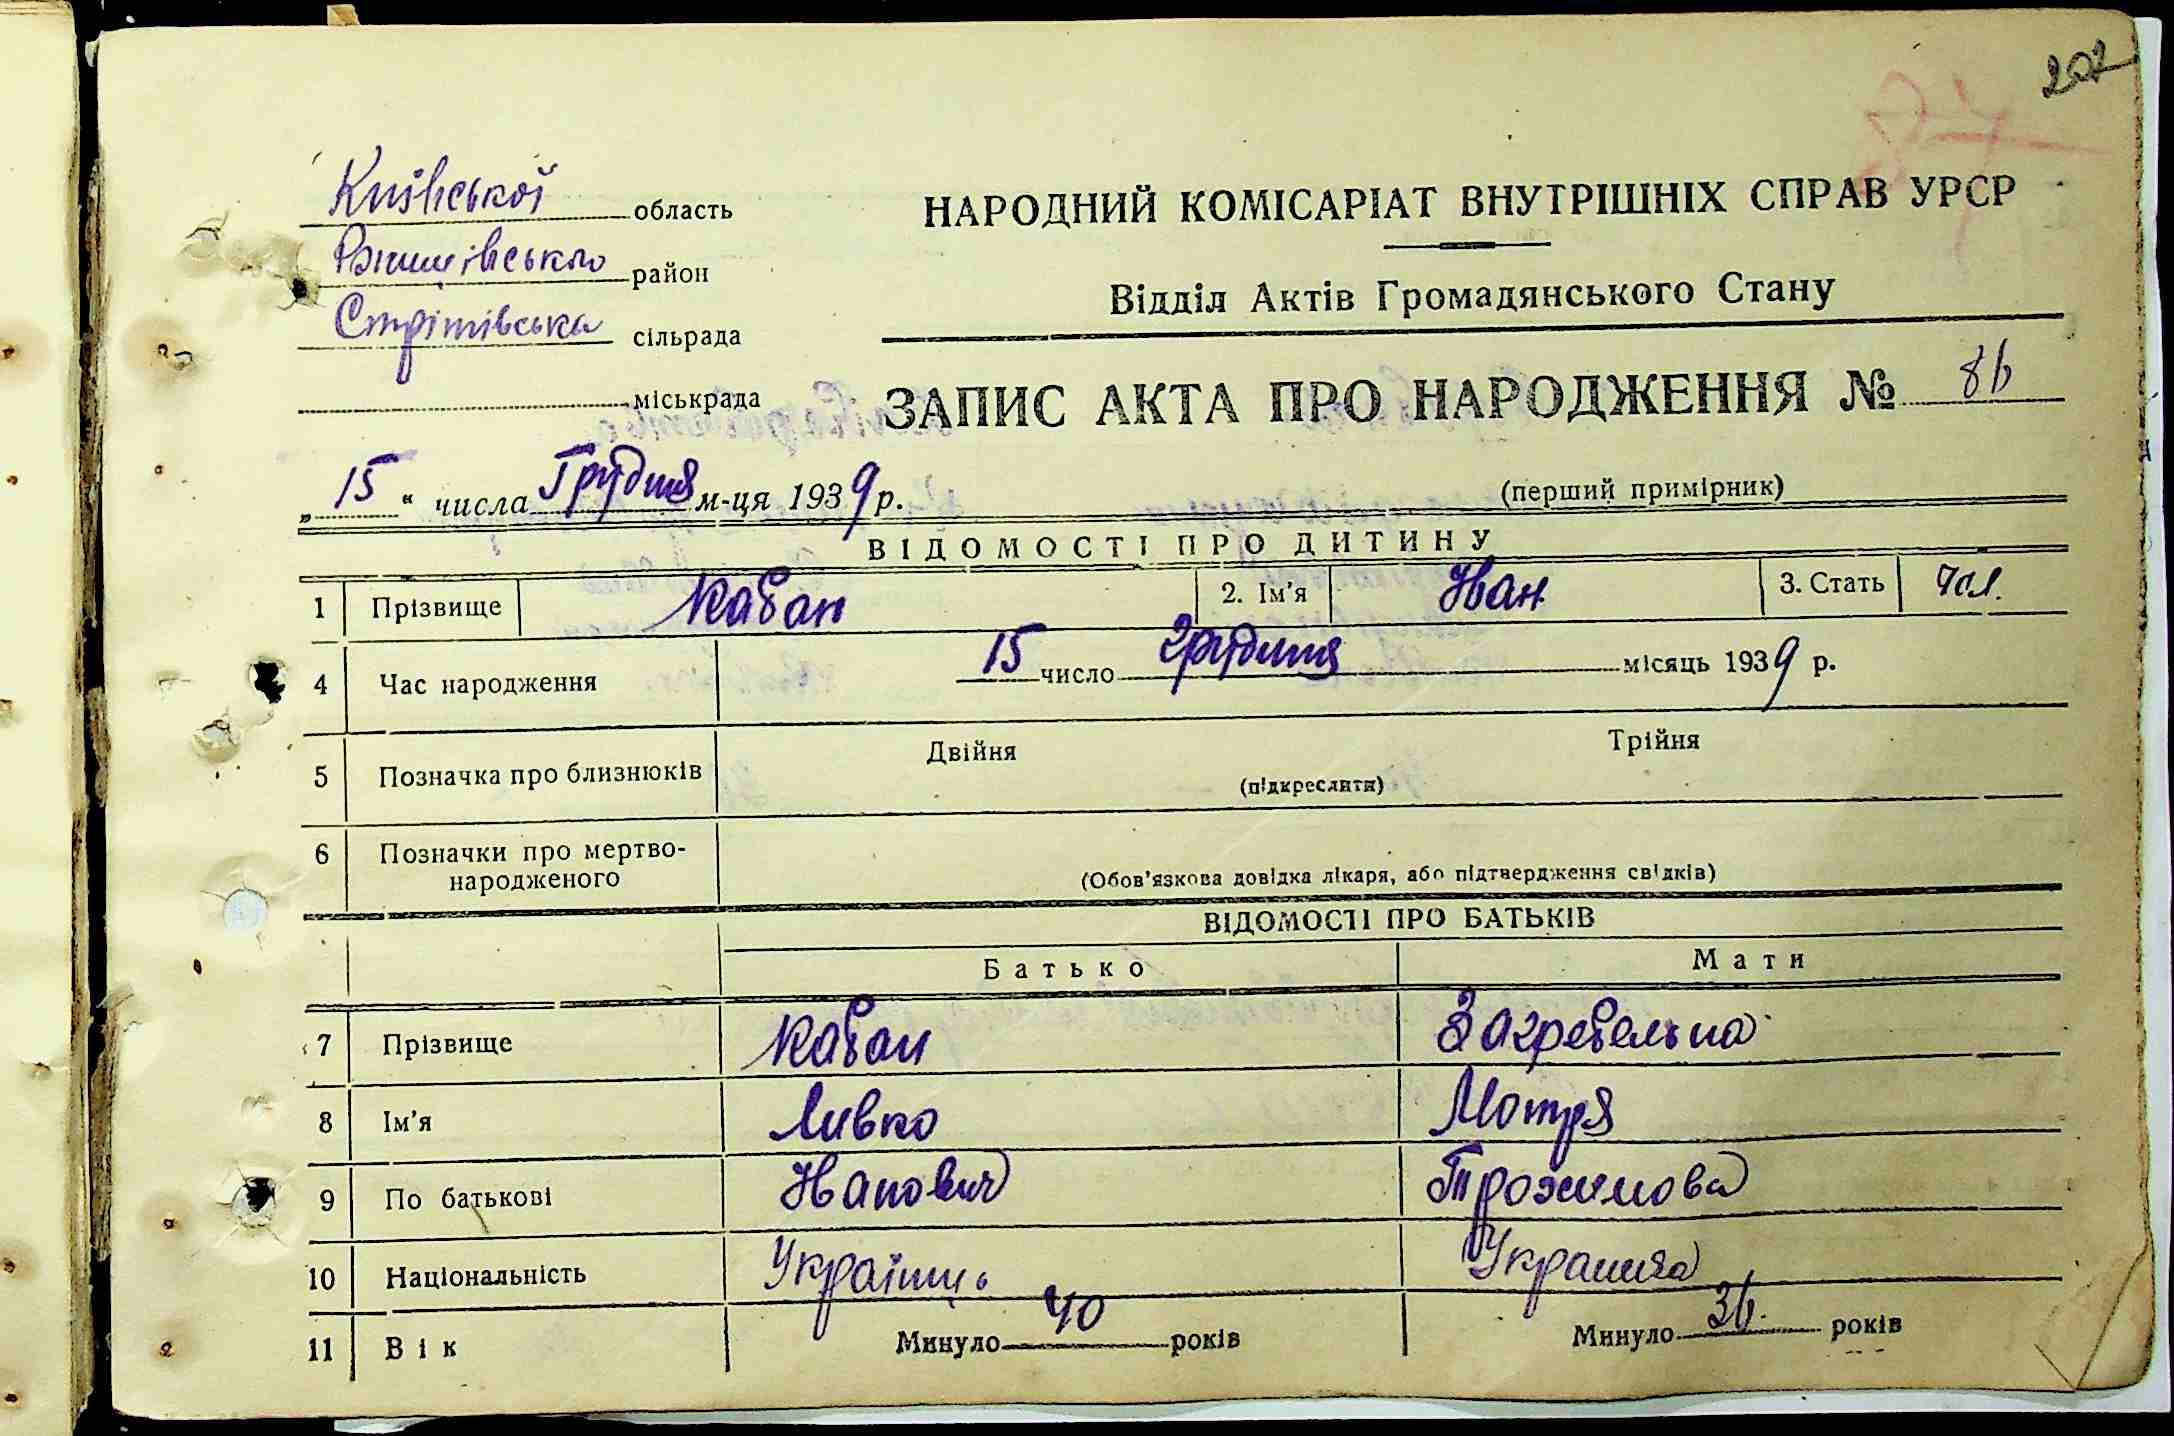 202
Київської область
Ржищівського район
Стрітівська сільрада
міськрада
НАРОДНИЙ КОМІСАРІАТ ВНУТРІШНІХ СПРАВ УРСР
Відділ Актів Громадянського Стану
ЗАПИС АКТА ПРО НАРОДЖЕННЯ № 86
„15“ числа Грудня м-ця 1939 р. (перший примірник)
ВІДОМОСТІ ПРО ДИТИНУ
1 Прізвище Кабан 2. Ім'я Іван 3. Стать Чол.
4 Час народження 15 число грудня місяць 1939 р.
5 Позначка про близнюків Двійня Трійня
(підкреслити)
6 Позначки про мертво-
народженого (Обов'язкова довідка лікаря, або підтвердження свідків)
ВІДОМОСТІ ПРО БАТЬКІВ
Батько Мати
7 Прізвище Кабан Загребельна
8 Ім'я Левко Мотря
9 По батькові Іванович Трохимова
10 Національність Українць Украинка
11 Вік Минуло 40 років Минуло 36 років